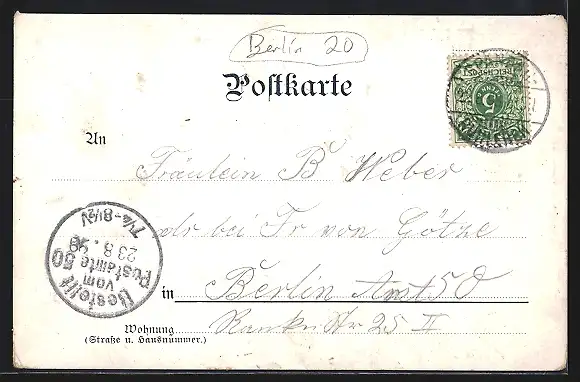 Berlin 20
Postkarte
An
Fräulein B Weber
bei Fr von Götze
in Berlin Amt 50
Wohnung
(Straße u. Hausnummer.)
Ranke Str 25 II
Bestellt
vom
Postamte 50
23 8. 98
7¼-8½V
5